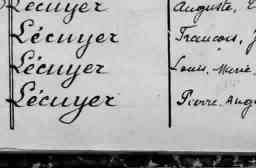 Lécuyer Auguste,
Lécuyer François, J
Lécuyer Louis, Marie
Lécuyer Pierre, Aug